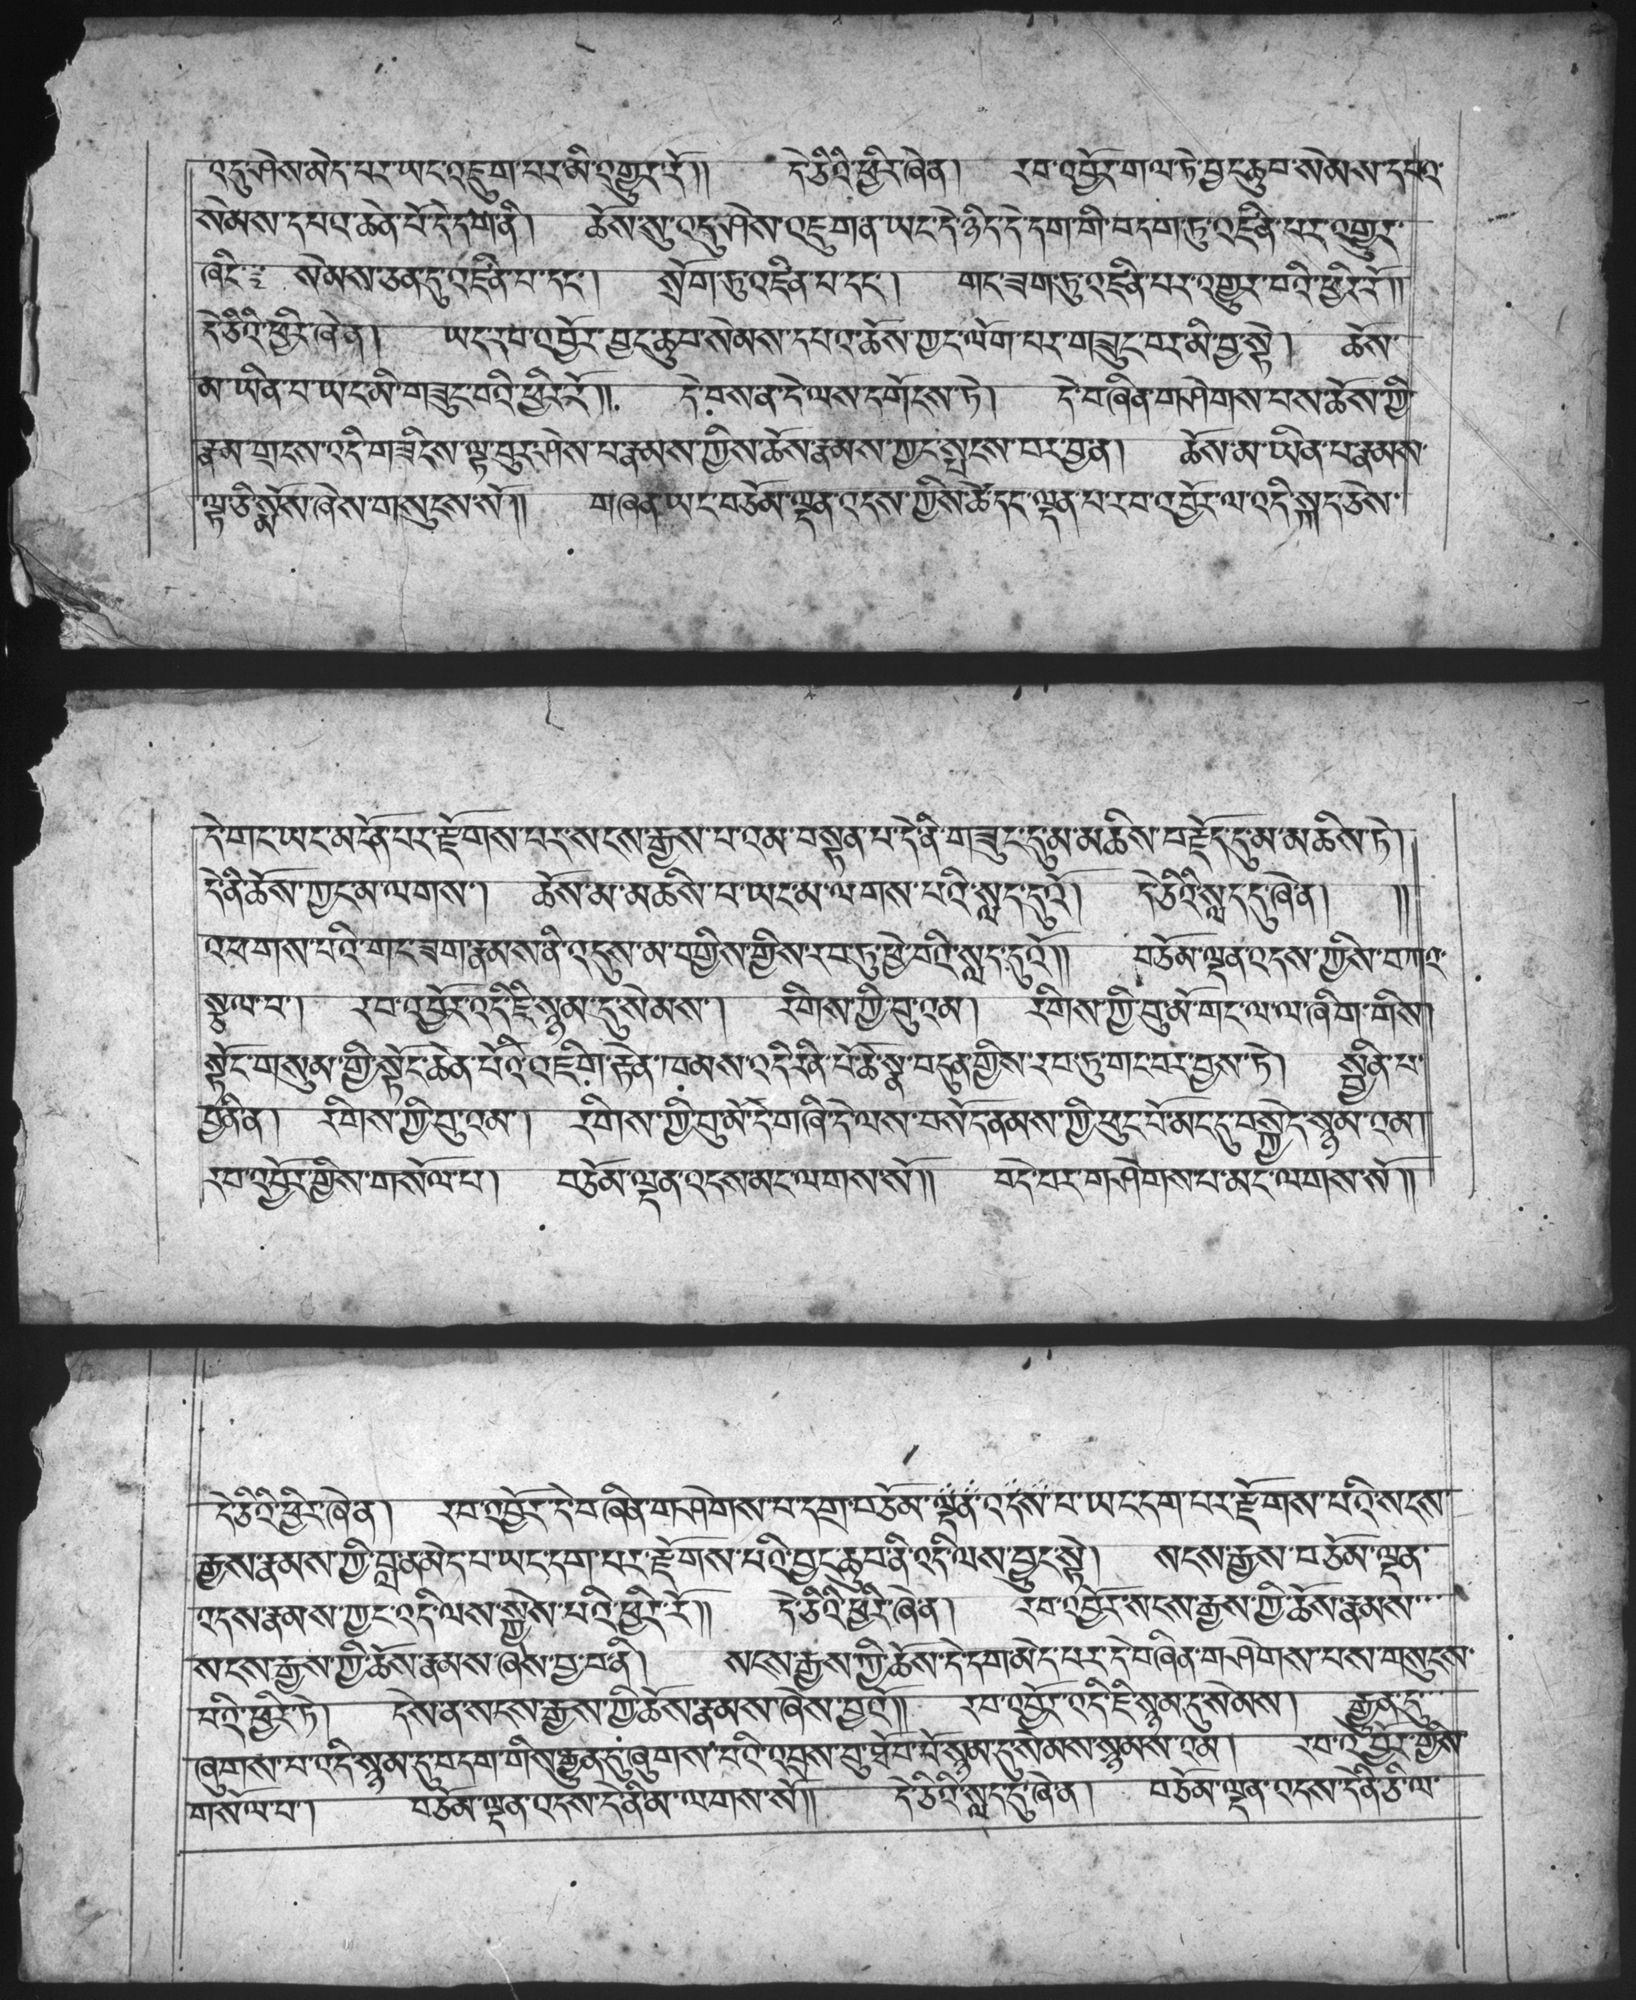 འདུ་ཤེས་མེད་པར་ཡང་འཇུག་པར་མི་འགྱུར་རོ།། དེ་ཅིའི་ཕྱིར་ཞེ་ན། རབ་འབྱོར་གལ་ཏེ་བྱང་ཆུབ་སེམས་དཔའ་
སེམས་དཔའ་ཆེན་པོ་དེ་དག་ནི། ཆོས་སུ་འདུ་ཤེས་འཇུག་ན་ཡང་དེ་ཉིད་དེ་དག་གི་བདག་ཏུ་འཛིན་པར་འགྱུར་
ཞིང་༔ སེམས་ཅན་དུ་འཛིན་པ་དང་། སྲོག་ཏུ་འཛིན་པ་དང་། གང་ཟག་ཏུ་འཛིན་པར་འགྱུར་བའི་ཕྱིར་རོ།།
དེ་ཅིའི་ཕྱིར་ཞེ་ན། ཡང་རབ་འབྱོར་བྱང་ཆུབ་སེམས་དཔའ་ཆོས་ཀྱང་ལོག་པར་གཟུང་བར་མི་བྱ་སྟེ། ཆོས་
མ་ཡིན་པ་ཡང་མི་གཟུང་བའི་ཕྱིར་རོ།། དེ་བས་ན་དེ་ལས་དགོངས་ཏེ། དེ་བཞིན་གཤེགས་པས་ཆོས་ཀྱི་
རྣམ་གྲངས་འདི་གཟིངས་ལྟ་བུར་ཤེས་པ་རྣམས་ཀྱིས་ཆོས་རྣམས་ཀྱང་སྤངས་བར་བྱ་ན། ཆོས་མ་ཡིན་པ་རྣམས་
ལྟ་ཅི་སྨོས་ཞེས་གསུངས་སོ།། གཞན་ཡང་བཅོམ་ལྡན་འདས་ཀྱིས་ཚེ་དང་ལྡན་པ་རབ་འབྱོར་ལ་འདི་སྐད་ཅེས་
དེ་གང་ཡང་མངོན་པར་རྫོགས་པར་སངས་རྒྱས་པ་འམ་བསྟན་པ་དེ་ནི་གཟུང་དུ་མ་མཆིས་བརྗོད་དུ་མ་མཆིས་ཏེ།
དེ་ནི་ཆོས་ཀྱང་མ་ལགས། ཆོས་མ་མཆིས་པ་ཡང་མ་ལགས་པའི་སླད་དུའོ། དེ་ཅིའི་སླད་དུ་ཞེ་ན། །།
འཕགས་པའི་གང་ཟག་རྣམས་ནི་འདུས་མ་བགྱིས་ཀྱིས་རབ་ཏུ་ཕྱེ་བའི་སླད་དུའོ།། བཅོམ་ལྡན་འདས་ཀྱིས་བཀའ་
སྩལ་པ། རབ་འབྱོར་འདི་ཇི་སྙམ་དུ་སེམས། རིགས་ཀྱི་བུ་འམ། རིགས་ཀྱི་བུ་མོ་གང་ལ་ལ་ཞིག་གིས།
སྟོང་གསུམ་གྱི་སྟོང་ཆེན་པོའི་འཇིག་རྟེན་ཁམས་འདི་རིན་པོ་ཆེ་སྣ་བདུན་གྱིས་རབ་ཏུ་གང་བར་བྱས་ཏེ། སྦྱིན་པ་
བྱིན་ན། རིགས་ཀྱི་བུ་འམ། རིགས་ཀྱི་བུ་མོ་དེ་གཞི་དེ་ལས་བསོད་ནམས་ཀྱི་ཕུང་པོ་མང་དུ་བསྐྱེད་སྙམ་འམ།
རབ་འབྱོར་གྱིས་གསོལ་པ། བཅོམ་ལྡན་འདས་མང་ལགས་སོ།། བདེ་བར་གཤེགས་པ་མང་ལགས་སོ།།
དེ་ཅིའི་ཕྱིར་ཞེ་ན། རབ་འབྱོར་དེ་བཞིན་གཤེགས་པ་དགྲ་བཅོམ་ལྡན་འདས་པ་ཡང་དག་པར་རྫོགས་པའི་སངས་
རྒྱས་རྣམས་ཀྱི་བླ་ན་མེད་པ་ཡང་དག་པར་རྫོགས་པའི་བྱང་ཆུབ་ནི་འདི་ལས་བྱུང་སྟེ། སངས་རྒྱས་བཅོམ་ལྡན་
འདས་རྣམས་ཀྱང་འདི་ལས་སྐྱེས་པའི་ཕྱིར་རོ།། དེ་ཅིའི་ཕྱིར་ཞེ་ན། རབ་འབྱོར་སངས་རྒྱས་ཀྱི་ཆོས་རྣམས་
སངས་རྒྱས་ཀྱི་ཆོས་རྣམས་ཞེས་བྱ་བ་ནི། སངས་རྒྱས་ཀྱི་ཆོས་དེ་དག་མེད་པར་དེ་བཞིན་གཤེགས་པས་གསུངས་
པའི་ཕྱིར་ཏེ། དེས་ན་སངས་རྒྱས་ཀྱི་ཆོས་རྣམས་ཞེས་བྱའོ།། རབ་འབྱོར་འདི་ཇི་སྙམ་དུ་སེམས། རྒྱུན་དུ་
ཞུགས་པ་འདི་སྙམ་དུ་བདག་གིས་རྒྱུན་དུ་ཞུགས་པའི་འབྲས་བུ་ཐོབ་པོ་སྙམ་དུ་སེམས་སྙམས་འམ། རབ་འབྱོར་གྱིས་
གསོལ་པ། བཅོམ་ལྡན་འདས་དེ་ནི་མ་ལགས་སོ།། དེ་ཅིའི་སླད་དུ་ཞེ་ན། བཅོམ་ལྡན་འདས་དེ་ནི་ཅི་ལ་